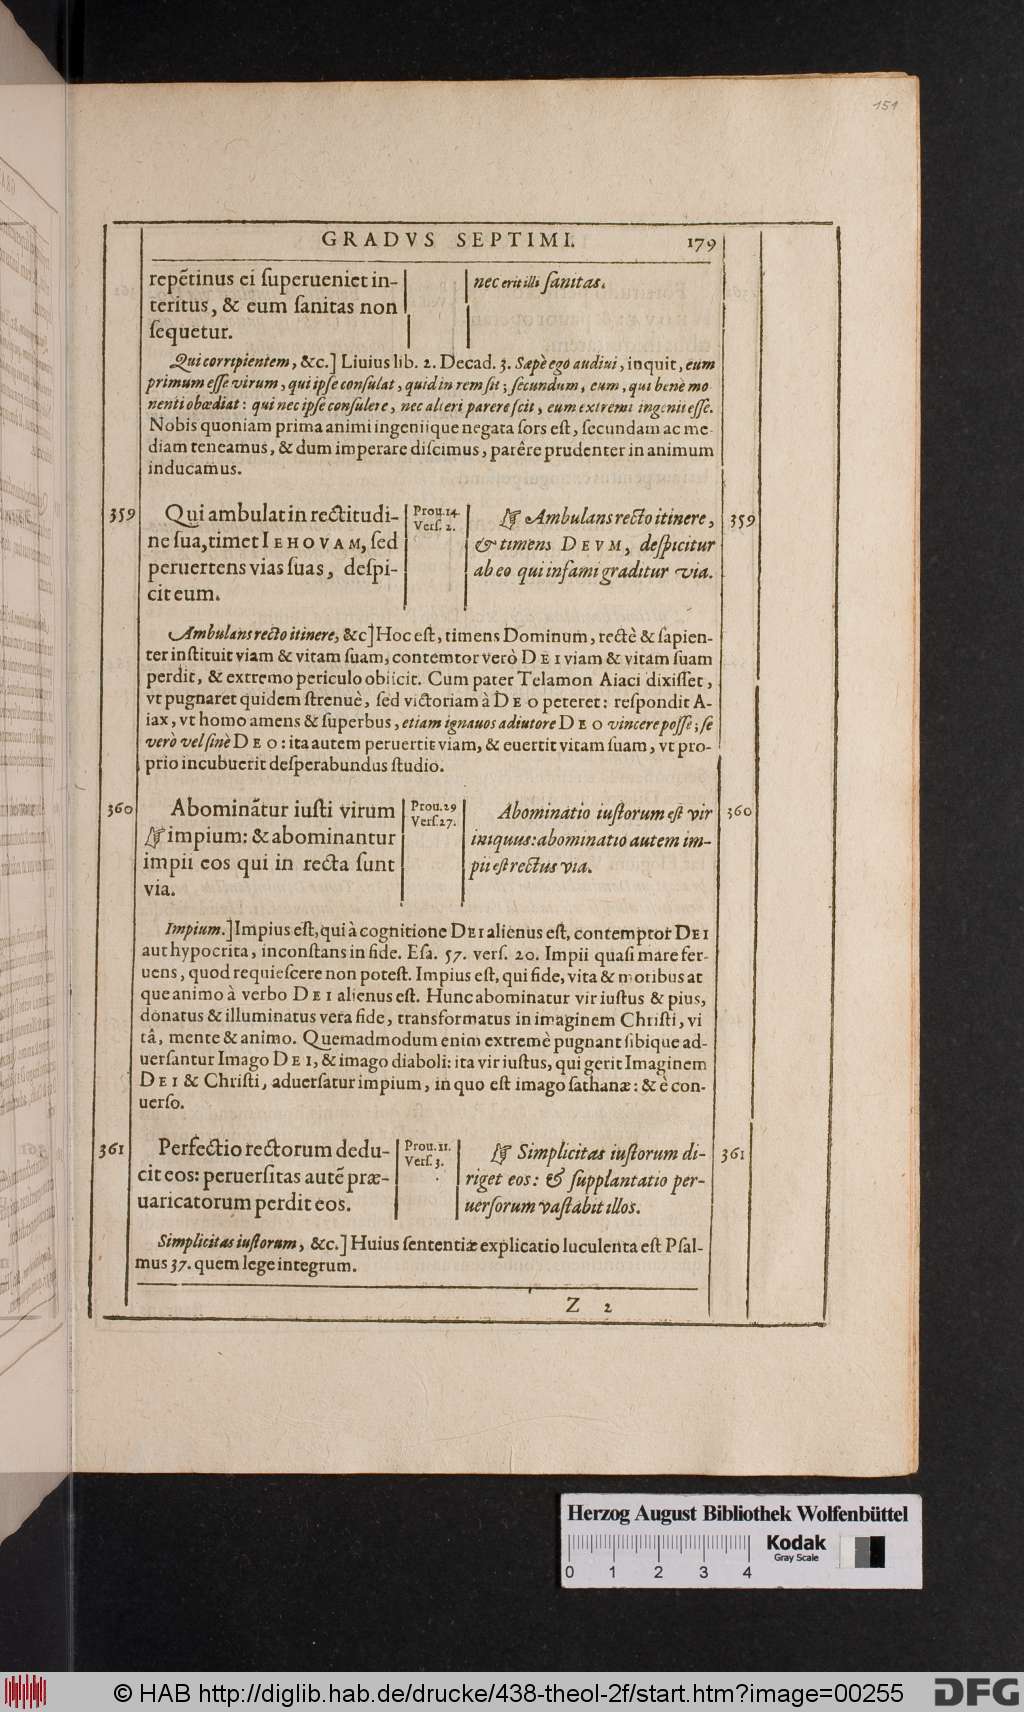 151
GRADVS SEPTIMI. 179
repẽtinus ei ſuperueniet in-
teritus, & eum ſanitas non
ſequetur.
nec erit illi ſanitas.
Qui corripientem, &c.] Liuius lib. 2. Decad. 3. Sæpè ego audiui, inquit, eum
primum eſſe virum, qui ipſe conſulat, quid in rem ſit; ſecundum, eum, qui benè mo
nenti obœdiat: qui nec ipſe conſulere, nec alteri parere ſcit, eum extremi ingenii eſſe.
Nobis quoniam prima animi ingeniique negata ſors eſt, ſecundam ac me-
diam teneamus, & dum imperare diſcimus, parêre prudenter in animum
inducamus.
359 Qui ambulat in rectitudi-
ne ſua, timet IEHOVAM, ſed
peruertens vias ſuas, deſpi-
cit eum.
Prou. 14.
Verſ. 2.
☞ Ambulans recto itinere, 359
& timens DEVM, deſpicitur
ab eo qui infami graditur via.
Ambulans recto itinere, &c] Hoc eſt, timens Dominum, rectè & ſapien-
ter inſtituit viam & vitam ſuam, contemtor verò DEI viam & vitam ſuam
perdit, & extremo periculo obiicit. Cum pater Telamon Aiaci dixiſſet,
vt pugnaret quidem ſtrenuè, ſed victoriam à DEO peteret: reſpondit A-
iax, vt homo amens & ſuperbus, etiam ignauos adiutore DEO vincere poſſe; ſe
verò vel ſinè DEO: ita autem peruertit viam, & euertit vitam ſuam, vt pro-
prio incubuerit deſperabundus ſtudio.
360 Abominãtur iuſti virum
☞ impium: & abominantur
impii eos qui in recta ſunt
via.
Prou. 29
Verſ. 27.
Abominatio iuſtorum eſt vir 360
iniquus: abominatio autem im-
pii eſt rectus via.
Impium.] Impius eſt, qui à cognitione DEI alienus eſt, contemptor DEI
aut hypocrita, inconſtans in fide. Eſa. 57. verſ. 20. Impii quaſi mare fer-
uens, quod requieſcere non poteſt. Impius eſt, qui fide, vita & moribus at
que animo à verbo DEI alienus eſt. Hunc abominatur vir iuſtus & pius,
donatus & illuminatus vera fide, transformatus in imaginem Chriſti, vi
tâ, mente & animo. Quemadmodum enim extremè pugnant ſibique ad-
uerſantur Imago DEI, & imago diaboli: ita vir iuſtus, qui gerit Imaginem
DEI & Chriſti, aduerſatur impium, in quo eſt imago ſathanæ: & è con-
uerſo.
361 Perfectio rectorum dedu-
cit eos: peruerſitas autẽ præ-
uaricatorum perdit eos.
Prou. 11.
Verſ. 3.
☞ Simplicitas iuſtorum di- 361
riget eos: & ſupplantatio per-
uerſorum vaſtabit illos.
Simplicitas iuſtorum, &c.] Huius ſententiæ explicatio luculenta eſt Pſal-
mus 37. quem lege integrum.
Z 2
Herzog August Bibliothek Wolfenbüttel
Kodak
Gray Scale
0 1 2 3 4
© HAB http://diglib.hab.de/drucke/438-theol-2f/start.htm?image=00255
DFG